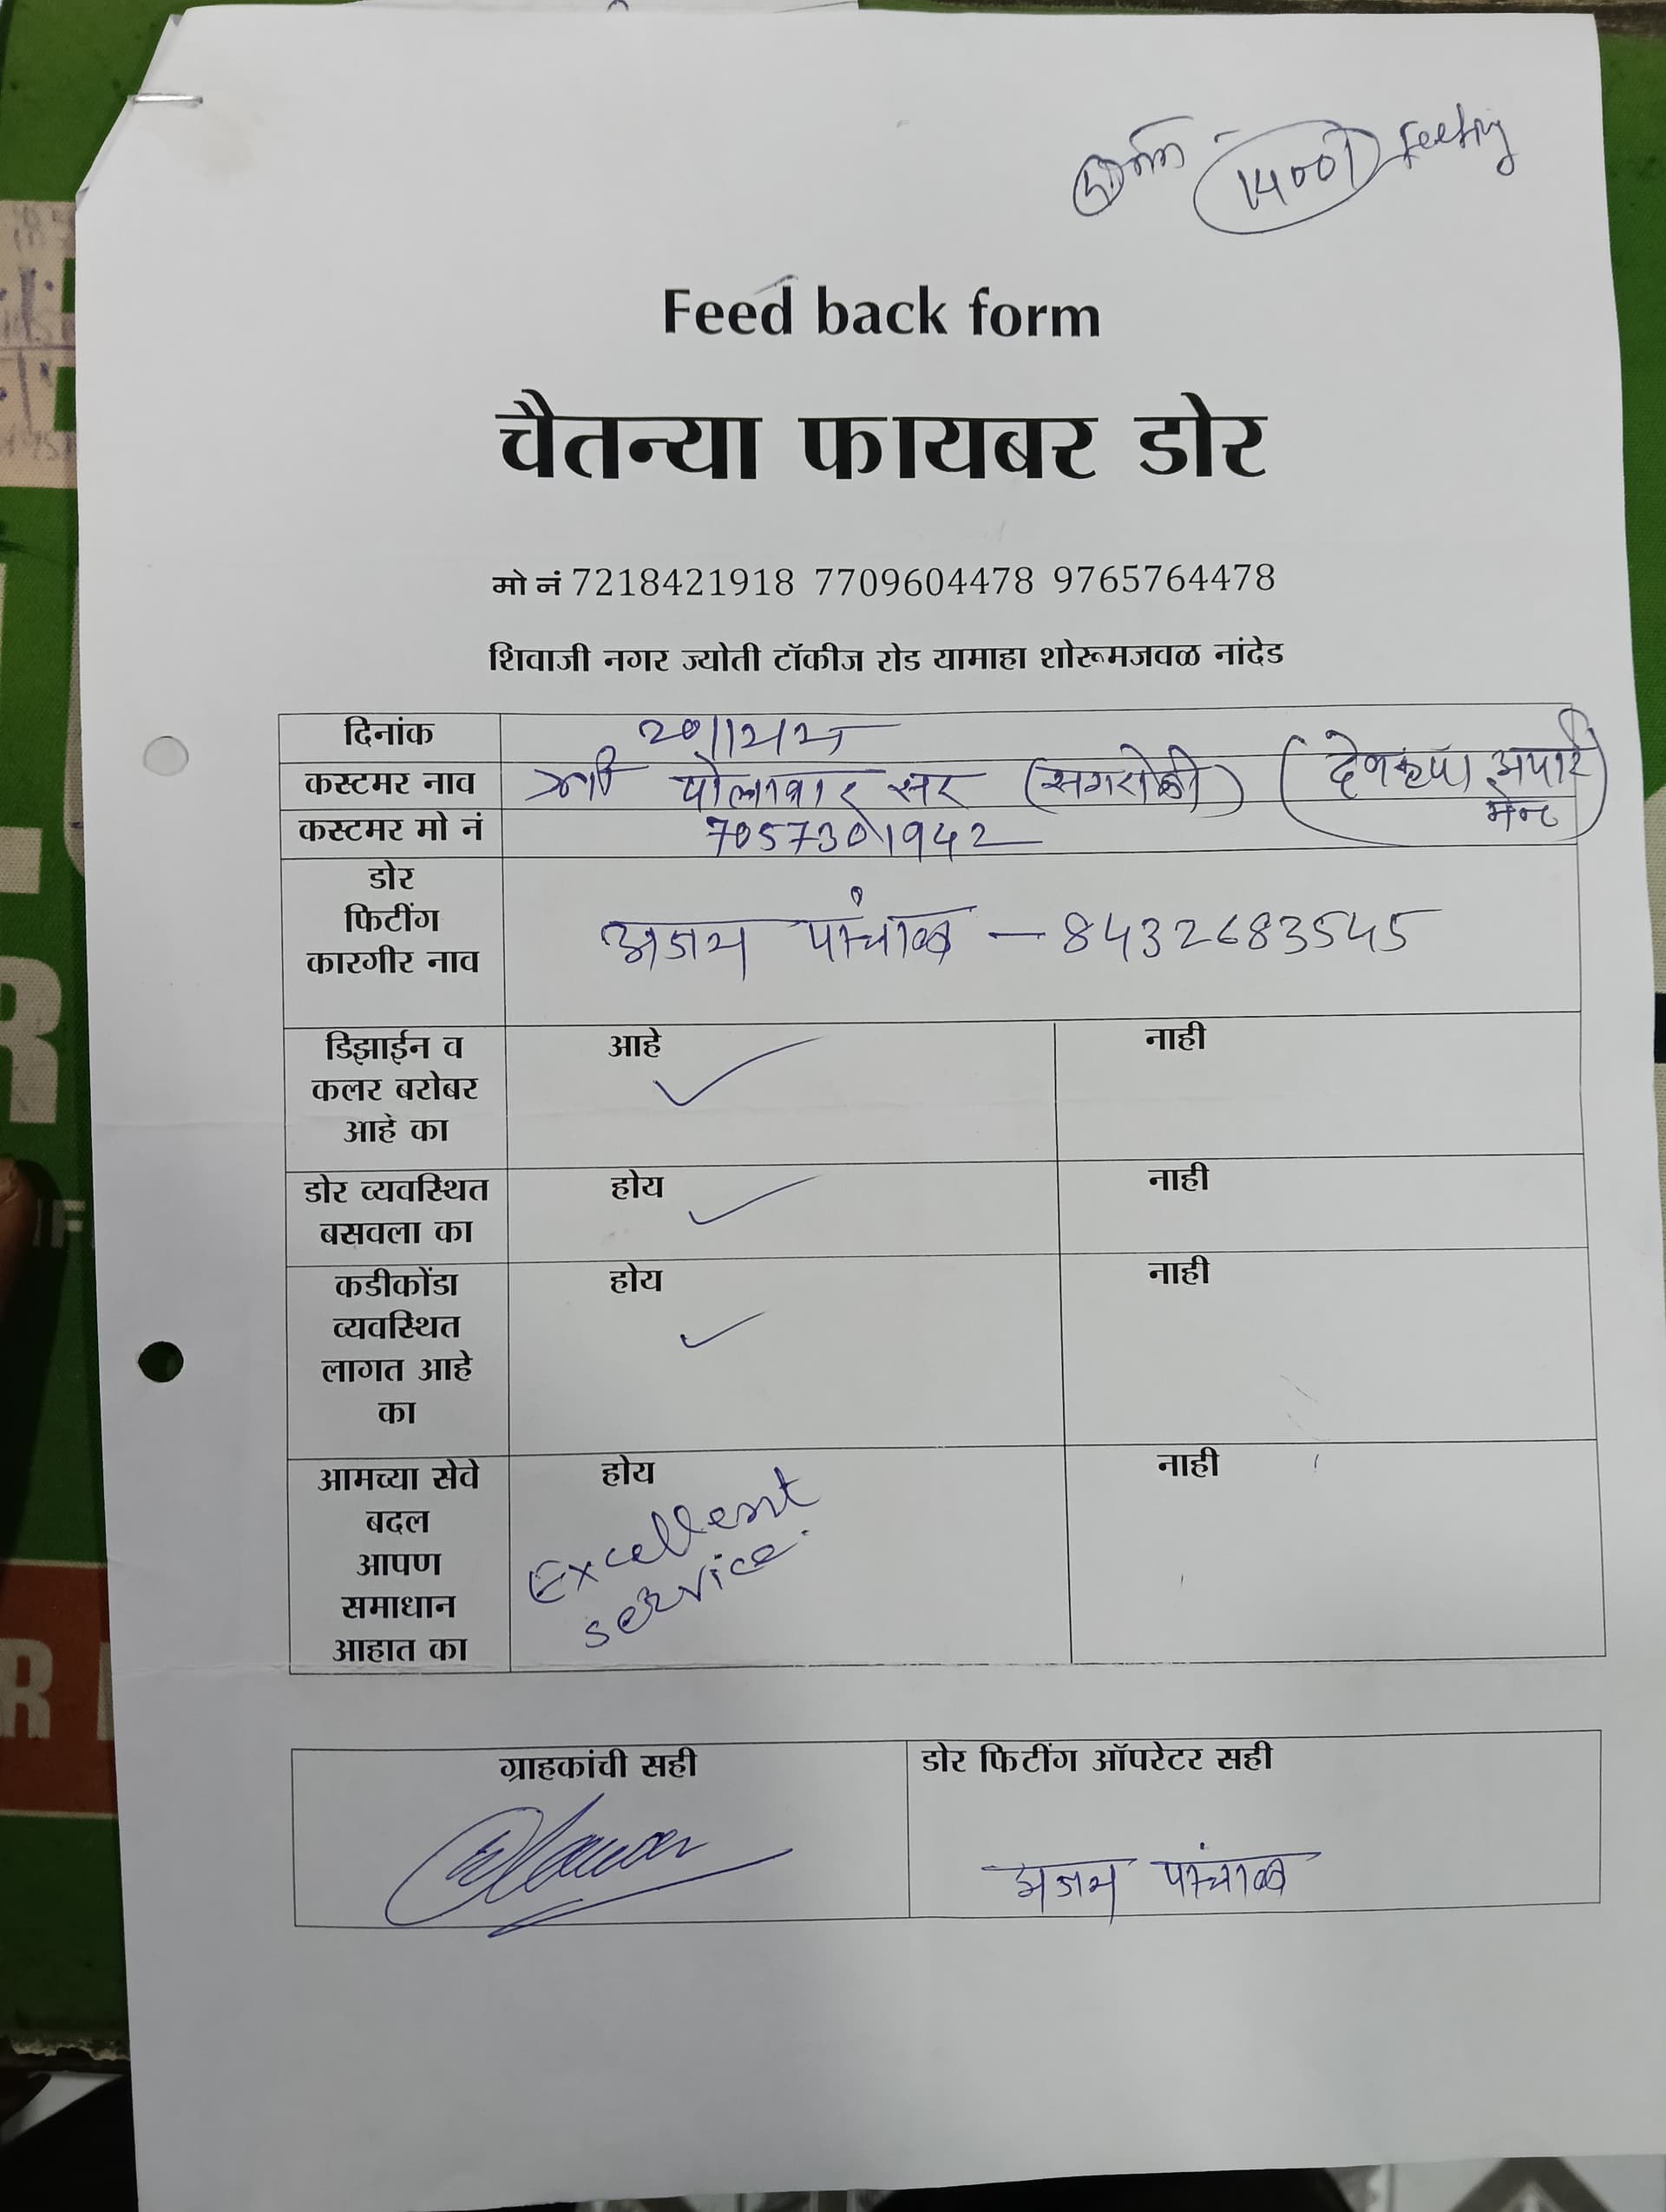 1400 feeting
Feed back form
चैतन्या फायबर डोर
मो नं 7218421918 7709604478 9765764478
शिवाजी नगर ज्योती टॉकीज रोड यामाहा शोरूमजवळ नांदेड
दिनांक २०/१२/२५
कस्टमर नाव श्री पोलावार सर (सगरोळी) (देवकृपा अपार्टमेन्ट)
कस्टमर मो नं 7057301942
डोर
फिटींग
कारगीर नाव
अजय पांचाळ – 8432683545
डिझाईन व
कलर बरोबर
आहे का
आहे ✓
नाही
डोर व्यवस्थित
बसवला का
होय ✓
नाही
कडीकोंडा
व्यवस्थित
लागत आहे
का
होय ✓
नाही
आमच्या सेवे
बदल
आपण
समाधान
आहात का
होय
Excellent
service.
नाही
ग्राहकांची सही
डोर फिटींग ऑपरेटर सही
अजय पांचाळ